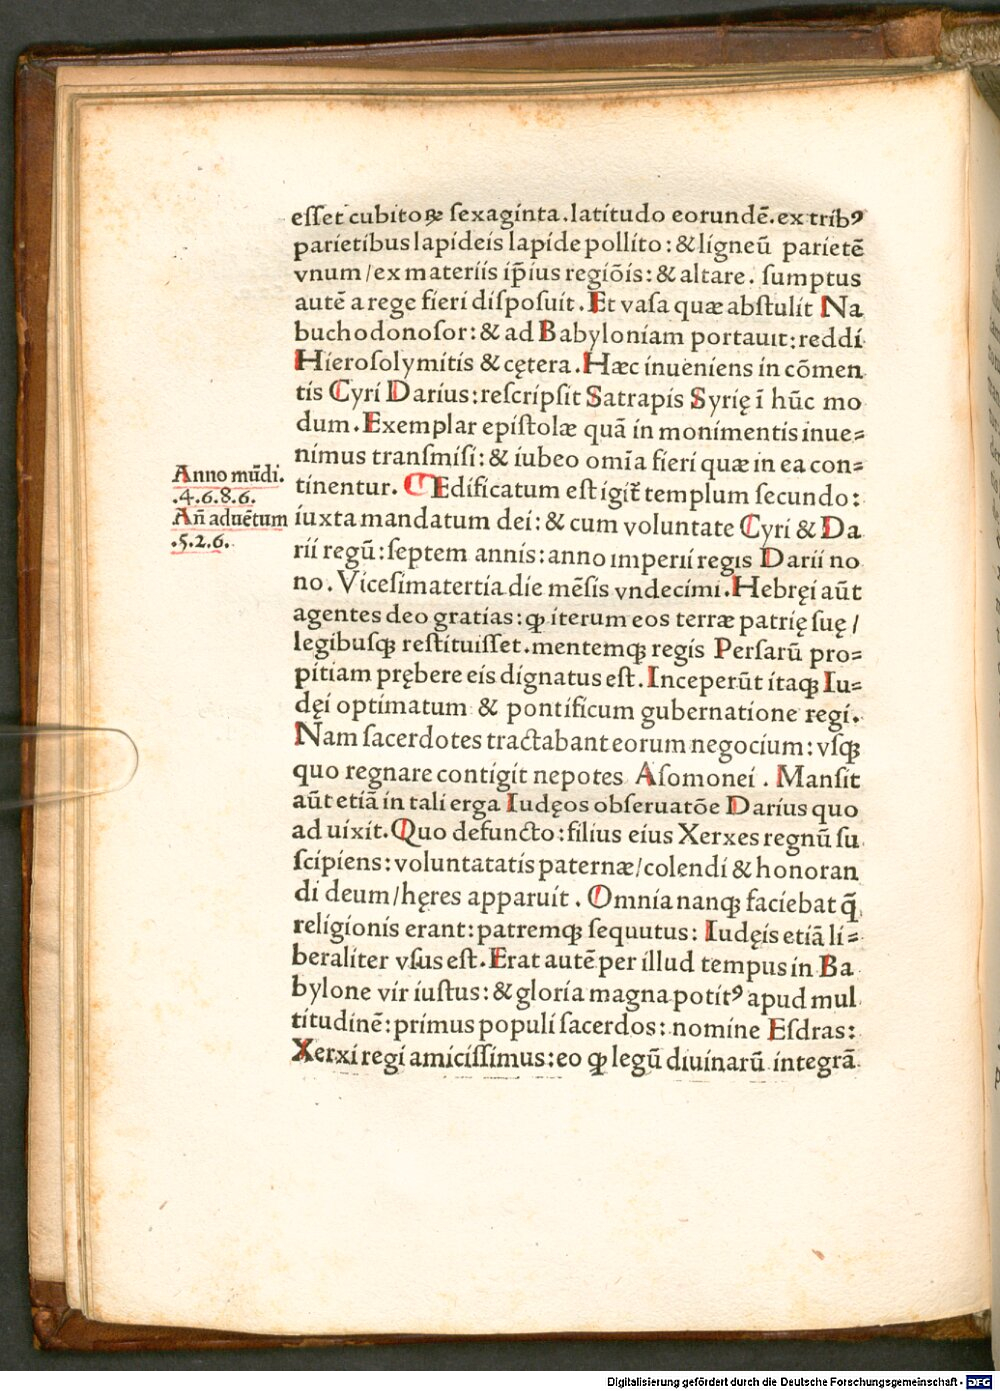 eſſet cubitoꝝ ſexaginta. latitudo eorundē. ex tribꝰ
parietibus lapideis lapide pollito: & ligneū parietē
vnum / ex materiis ip̄ius regiōis: & altare. ſumptus
autē a rege fieri diſpoſuit. Et vaſa quæ abſtulit Na
buchodonoſor: & ad Babyloniam portauit: reddi
Hieroſolymitis & cętera. Hæc inueniens in cōmen
tis Cyri Darius: reſcripſit Satrapis Syrię ī hūc mo
dum. Exemplar epiſtolæ quā in monimentis inue=
nimus tranſmiſi: & iubeo omīa fieri quæ in ea con=
tinentur. Edificatum eſt igit̄ templum ſecundo:
iuxta mandatum dei: & cum voluntate Cyri & Da
rii regū: ſeptem annis: anno imperii regis Darii no
no. Viceſimatertia die mēſis vndecimi. Hebręi aūt
agentes deo gratias: ꝙ iterum eos terræ patrię ſuę /
legibuſqꝫ reſtituiſſet. mentemqꝫ regis Perſarū pro=
pitiam prębere eis dignatus eſt. Inceperūt itaqꝫ Iu=
dęi optimatum & pontificum gubernatione regi.
Nam ſacerdotes tractabant eorum negocium: vſqꝫ
quo regnare contigit nepotes Aſomonei. Manſit
aūt etiā in tali erga Iudęos obſeruatōe Darius quo
ad uixit. Quo defuncto: filius eius Xerxes regnū ſu
ſcipiens: voluntatatis paternæ / colendi & honoran
di deum / hęres apparuit. Omnia nanqꝫ faciebat q̄
religionis erant: patremqꝫ ſequutus: Iudęis etiā li=
beraliter vſus eſt. Erat autē per illud tempus in Ba
bylone vir iuſtus: & gloria magna potitꝰ apud mul
titudinē: primus populi ſacerdos: nomine Eſdras:
Xerxi regi amiciſſimus: eo ꝙ legū diuinarū integrā
Anno mūdi.
.4.6.8.6.
Añ aduētum
.5.2.6.
Digitalisierung gefördert durch die Deutsche Forschungsgemeinschaft - DFG